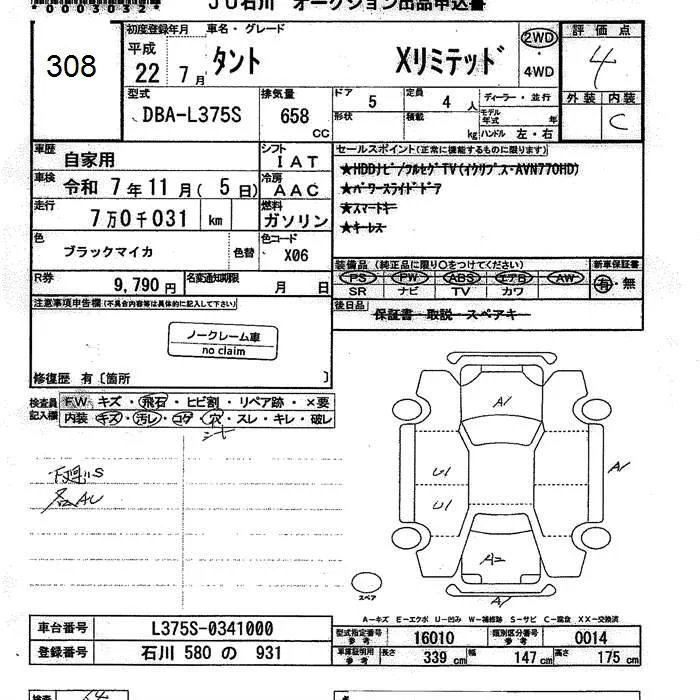 *00003032*
JU石川 オークション出品申込書
308
初度登録年月 車名・グレード
平成 22年 7月
タント Xリミテッド
2WD・4WD
評価点
4
外装 内装
C
型式 DBA-L375S
排気量 658 CC
ドア 5
定員 4 人
形状 積載 kg
ディーラー・並行
モデル年式 年
ハンドル 左・右
車歴 自家用
シフト IAT
車検 令和 7年 11月( 5日)
冷房 AAC
走行 7万0千031 km
燃料 ガソリン
色 ブラックマイカ 色替
色コード X06
R券 9,790円
名変通知期限 月 日
セールスポイント(正常に機能するものに限ります)
★HDDナビ/フルセグTV(イクリプス・AVN770HD)
★パワースライドドア
★スマートキー
★キーレス
装備品 (純正品に限り〇をつけてください)
新車保証書
PS PW ABS エアB AW
有・無
SR ナビ TV カワ
後日品 保証書・取説・スペアキー
注意事項申告欄(不具合内容等は具体的に記入して下さい)
ノークレーム車
no claim
修復歴 有〔箇所 〕
検査員記入欄
FW キズ・飛石・ヒビ割・リペア跡・×要
内装 キズ・汚レ・コゲ・穴・スレ・キレ・破レ
シート
下廻りS
各AU
A1
U1
U1
A2
A1
A1
スペア
A-キズ E-エクボ U-凹み W-補修跡 S-サビ C-腐食 XX-交換済
車台番号 L375S-0341000
登録番号 石川 580 の 931
型式指定番号 参考 16010
類別区分番号 参考 0014
車庫証明用 参考 長さ 339 cm 幅 147 cm 高さ 175 cm
検査